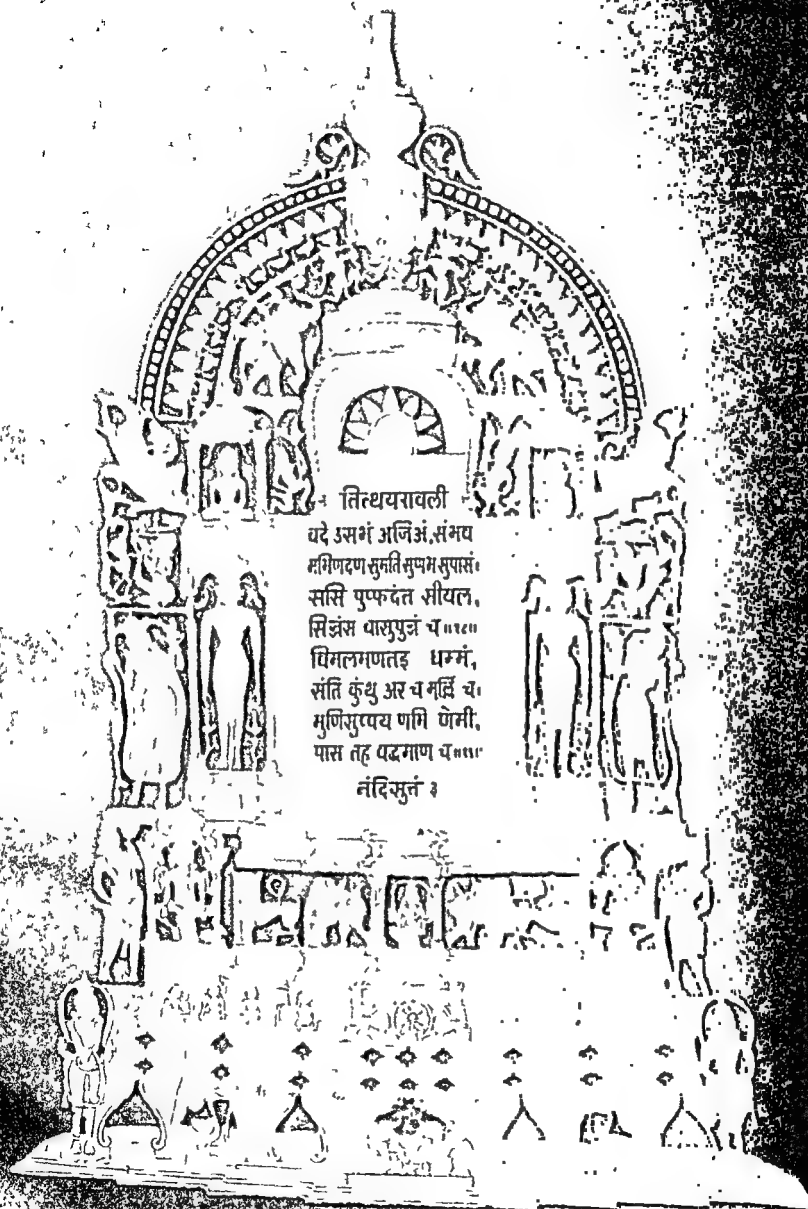 तित्थयरावली
वदे उसभं अजिअं,संभव
मभिणदण सुमति सुप्पभ सुपासं।
ससि पुप्फदंत सीयल,
सिज्जंस वासुपुज्जं च ॥१८॥
विमलमणतइ धम्मं,
संतिं कुंथु अर च मल्लिं च।
मुणिसुव्वय णमि णेमी,
पास तह वद्धमाण च ॥१९॥
नंदिसुत्तं ३